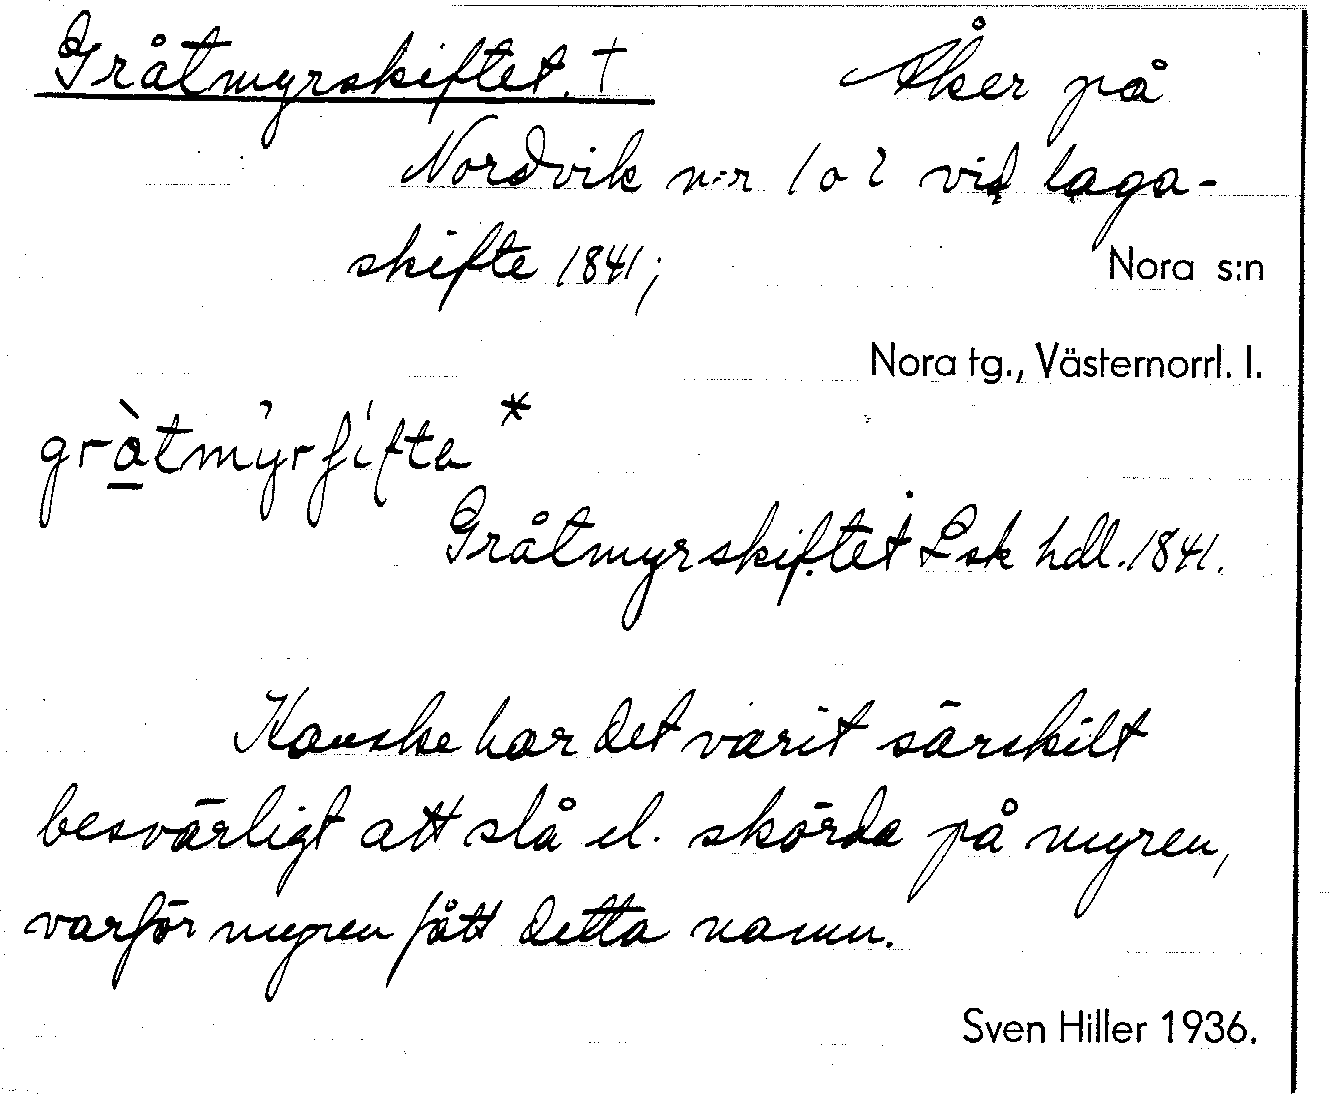 Gråtmyrskiftet. † Åker på
Nordvik n:r 1 o 2 vid laga-
skifte 1841;
Nora s:n
Nora tg., Västernorrl. l.
gråtmyrʃifta *
Gråtmyrskiftet Lsk hdl. 1841.
Kanske har det varit särskilt
besvärligt att slå el. skörda på myren,
varför myren fått detta namn.
Sven Hiller 1936.